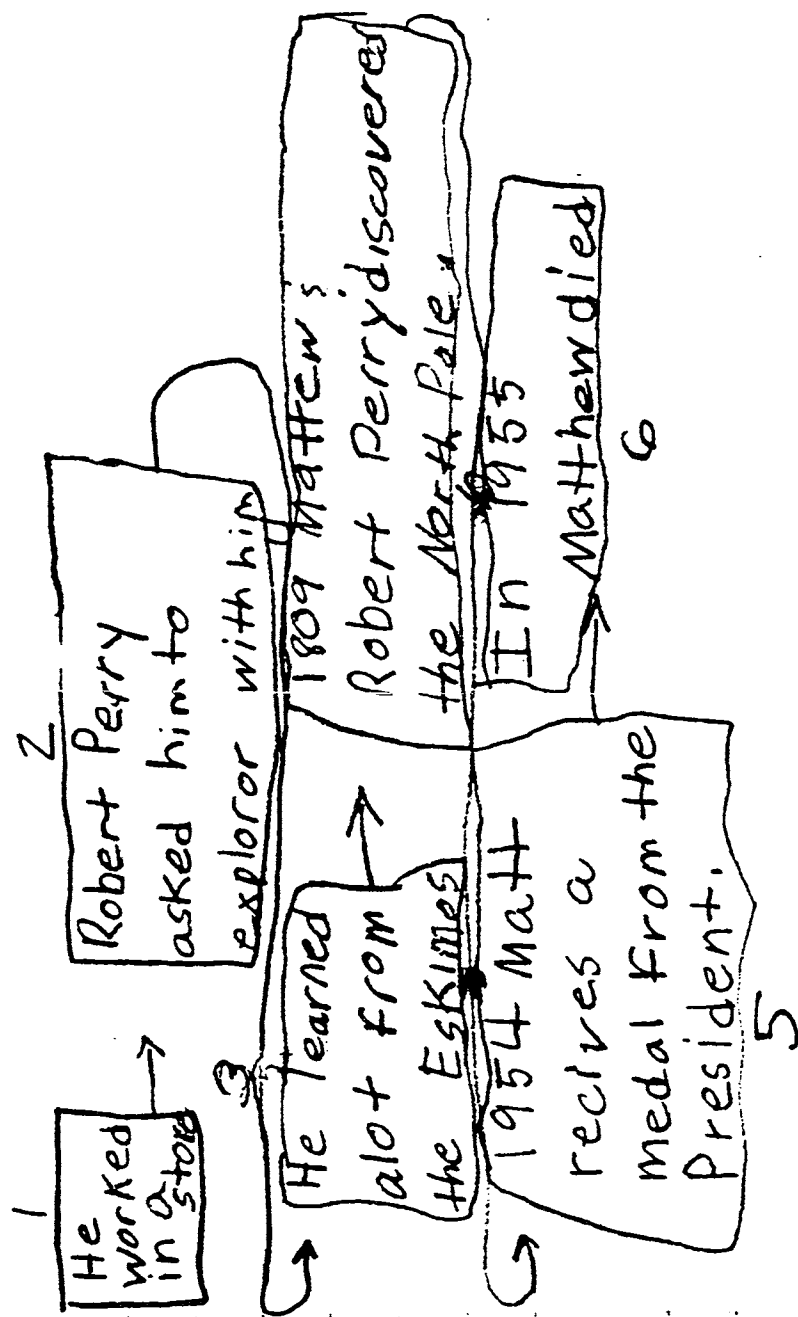 1
He
worked
in a
store
2
Robert Perry
asked him to
exploror with him
3
He learned
alot from
the Eskimos
1809 Mattew &
Robert Perry discovered
the North Pole.
1954 Matt
recives a
medal from the
President.
5
In 1955
Matthew died
6